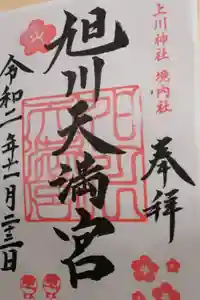 上川神社 境内社
奉拝
旭川天満宮
令和二年十一月二十三日